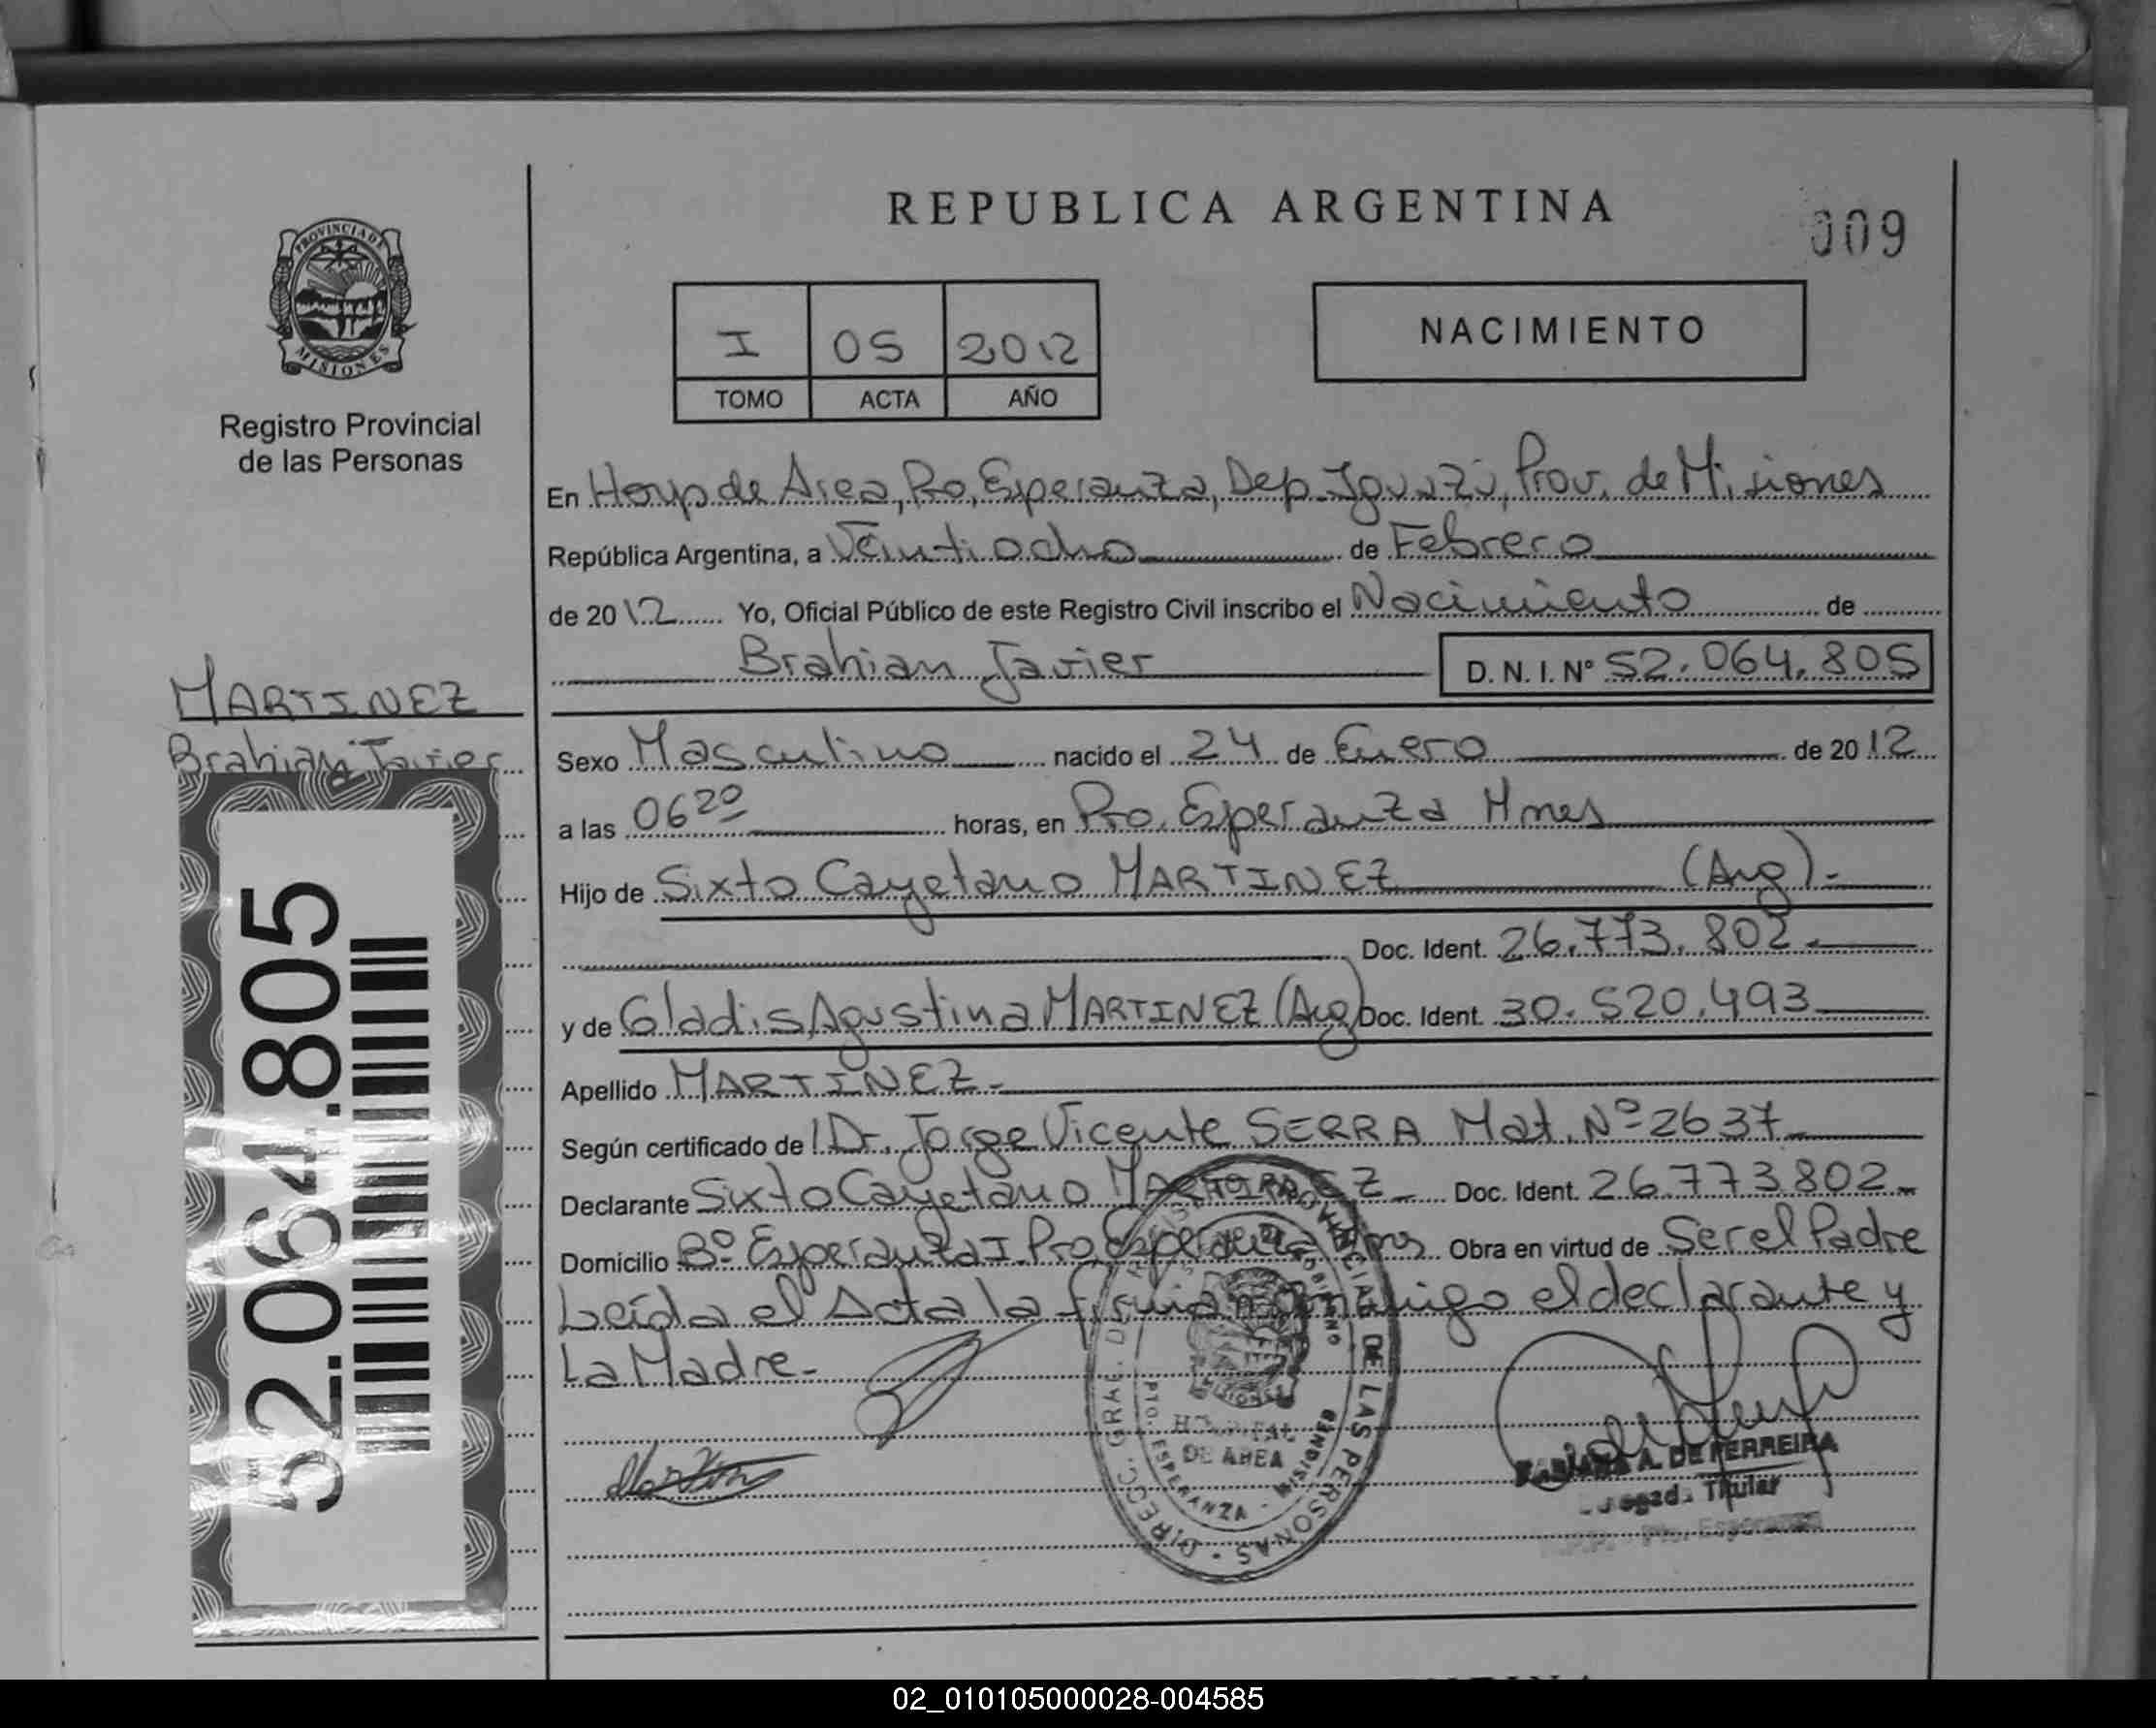 REPUBLICA ARGENTINA
009
PROVINCIA DE
MISIONES
Registro Provincial
de las Personas
I 05 2012
TOMO ACTA AÑO
NACIMIENTO
En Hosp de Area, Pto, Esperanza, Dep. Iguazú, Prov. de Misiones
República Argentina, a Veintiocho de Febrero
de 2012 Yo, Oficial Público de este Registro Civil inscribo el Nacimiento de
Brahian Javier D. N. I. Nº 52.064.805
MARTINEZ
Brahian Javier
52.064.805
Sexo Masculino nacido el 24 de Enero de 2012
a las 06 20 horas, en Pto. Esperanza Mnes
Hijo de Sixto Cayetano MARTINEZ (Arg).-
Doc. Ident. 26.773.802.-
y de Gladis Agustina MARTINEZ (Arg) Doc. Ident. 30.520.493
Apellido MARTINEZ.-
Según certificado de Dr. Jorge Vicente SERRA Mat. Nº 2637
Declarante Sixto Cayetano MARTINEZ Doc. Ident. 26.773.802-
Domicilio Bº Esperanza I Pto Esperanza Mnes Obra en virtud de Ser el Padre
Leída el Acta la firman conmigo el declarante y
La Madre.-
DIRECC. GRAL. DE LAS PERSONAS
HOSPITAL
DE AREA
PTO. ESPERANZA - MISIONES
A. DE FERREIRA
Titular
Pto. Esperanza
02_010105000028-004585